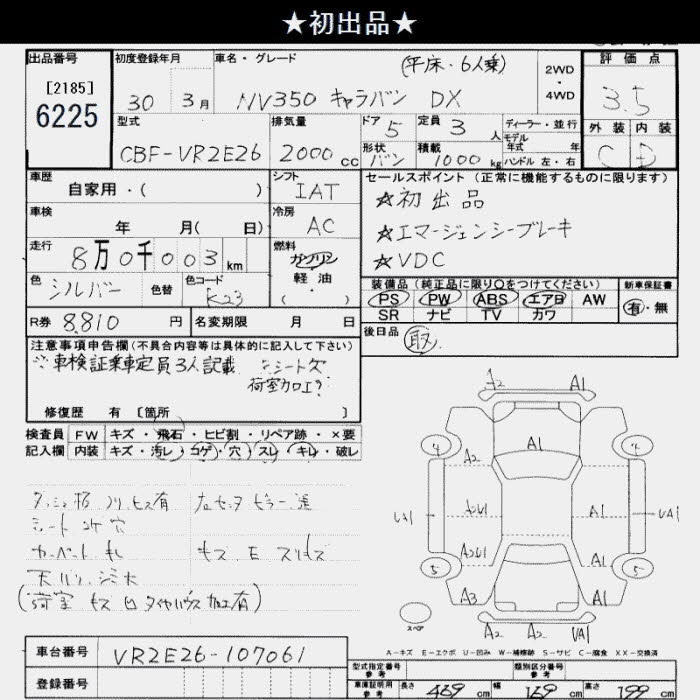 ★初出品★
出品番号
[2185]
6225
初度登録年月
30 3月
車名・グレード
(平床・6人乗)
NV350 キャラバン DX
2WD
・
4WD
評価点
3.5
外装 内装
C D
型式
CBF-VR2E26
排気量
2000cc
ドア
5
定員
3人
ディーラー・並行
モデル
年式 年
ハンドル 左・右
形状
バン
積載
1000kg
車歴
自家用・( )
シフト
IAT
車検
年 月( 日)
冷房
AC
走行
8万0千003km
燃料
ガソリン
軽油
( ・ )
色
シルバー
色替
色コード
K23
R券
8,810円
名変期限 月 日
セールスポイント(正常に機能するものに限ります)
☆初出品
☆エマージェンシーブレーキ
☆VDC
装備品(純正品に限り○をつけてください)
PS PW ABS エアB AW
SR ナビ TV カワ
新車保証書
有・無
後日品
取
注意事項申告欄(不具合内容等は具体的に記入して下さい)
※車検証乗車定員3人記載 シート欠
荷室加工?
修復歴 有 [箇所 ]
検査員 FW キズ・飛石・ヒビ割・リペア跡・×要
記入欄 内装 キズ・汚レ・コゲ・穴・スレ・キレ・破レ
シート コゲ 穴
車台番号
VR2E26-107061
登録番号
A2 A1
4 A1 4
A2
UA1 A2U1 A1 UA1
A2U1 A1
5 5
A3 A1
スペア
A2 A2 UA1
A-キズ E-エクボ U-凹み W-補修跡 S-サビ C-腐食 XX-交換済
型式指定番号
参考
類別区分番号
参考
車庫証明用
参考
長さ 469cm 幅 169cm 高さ 199cm